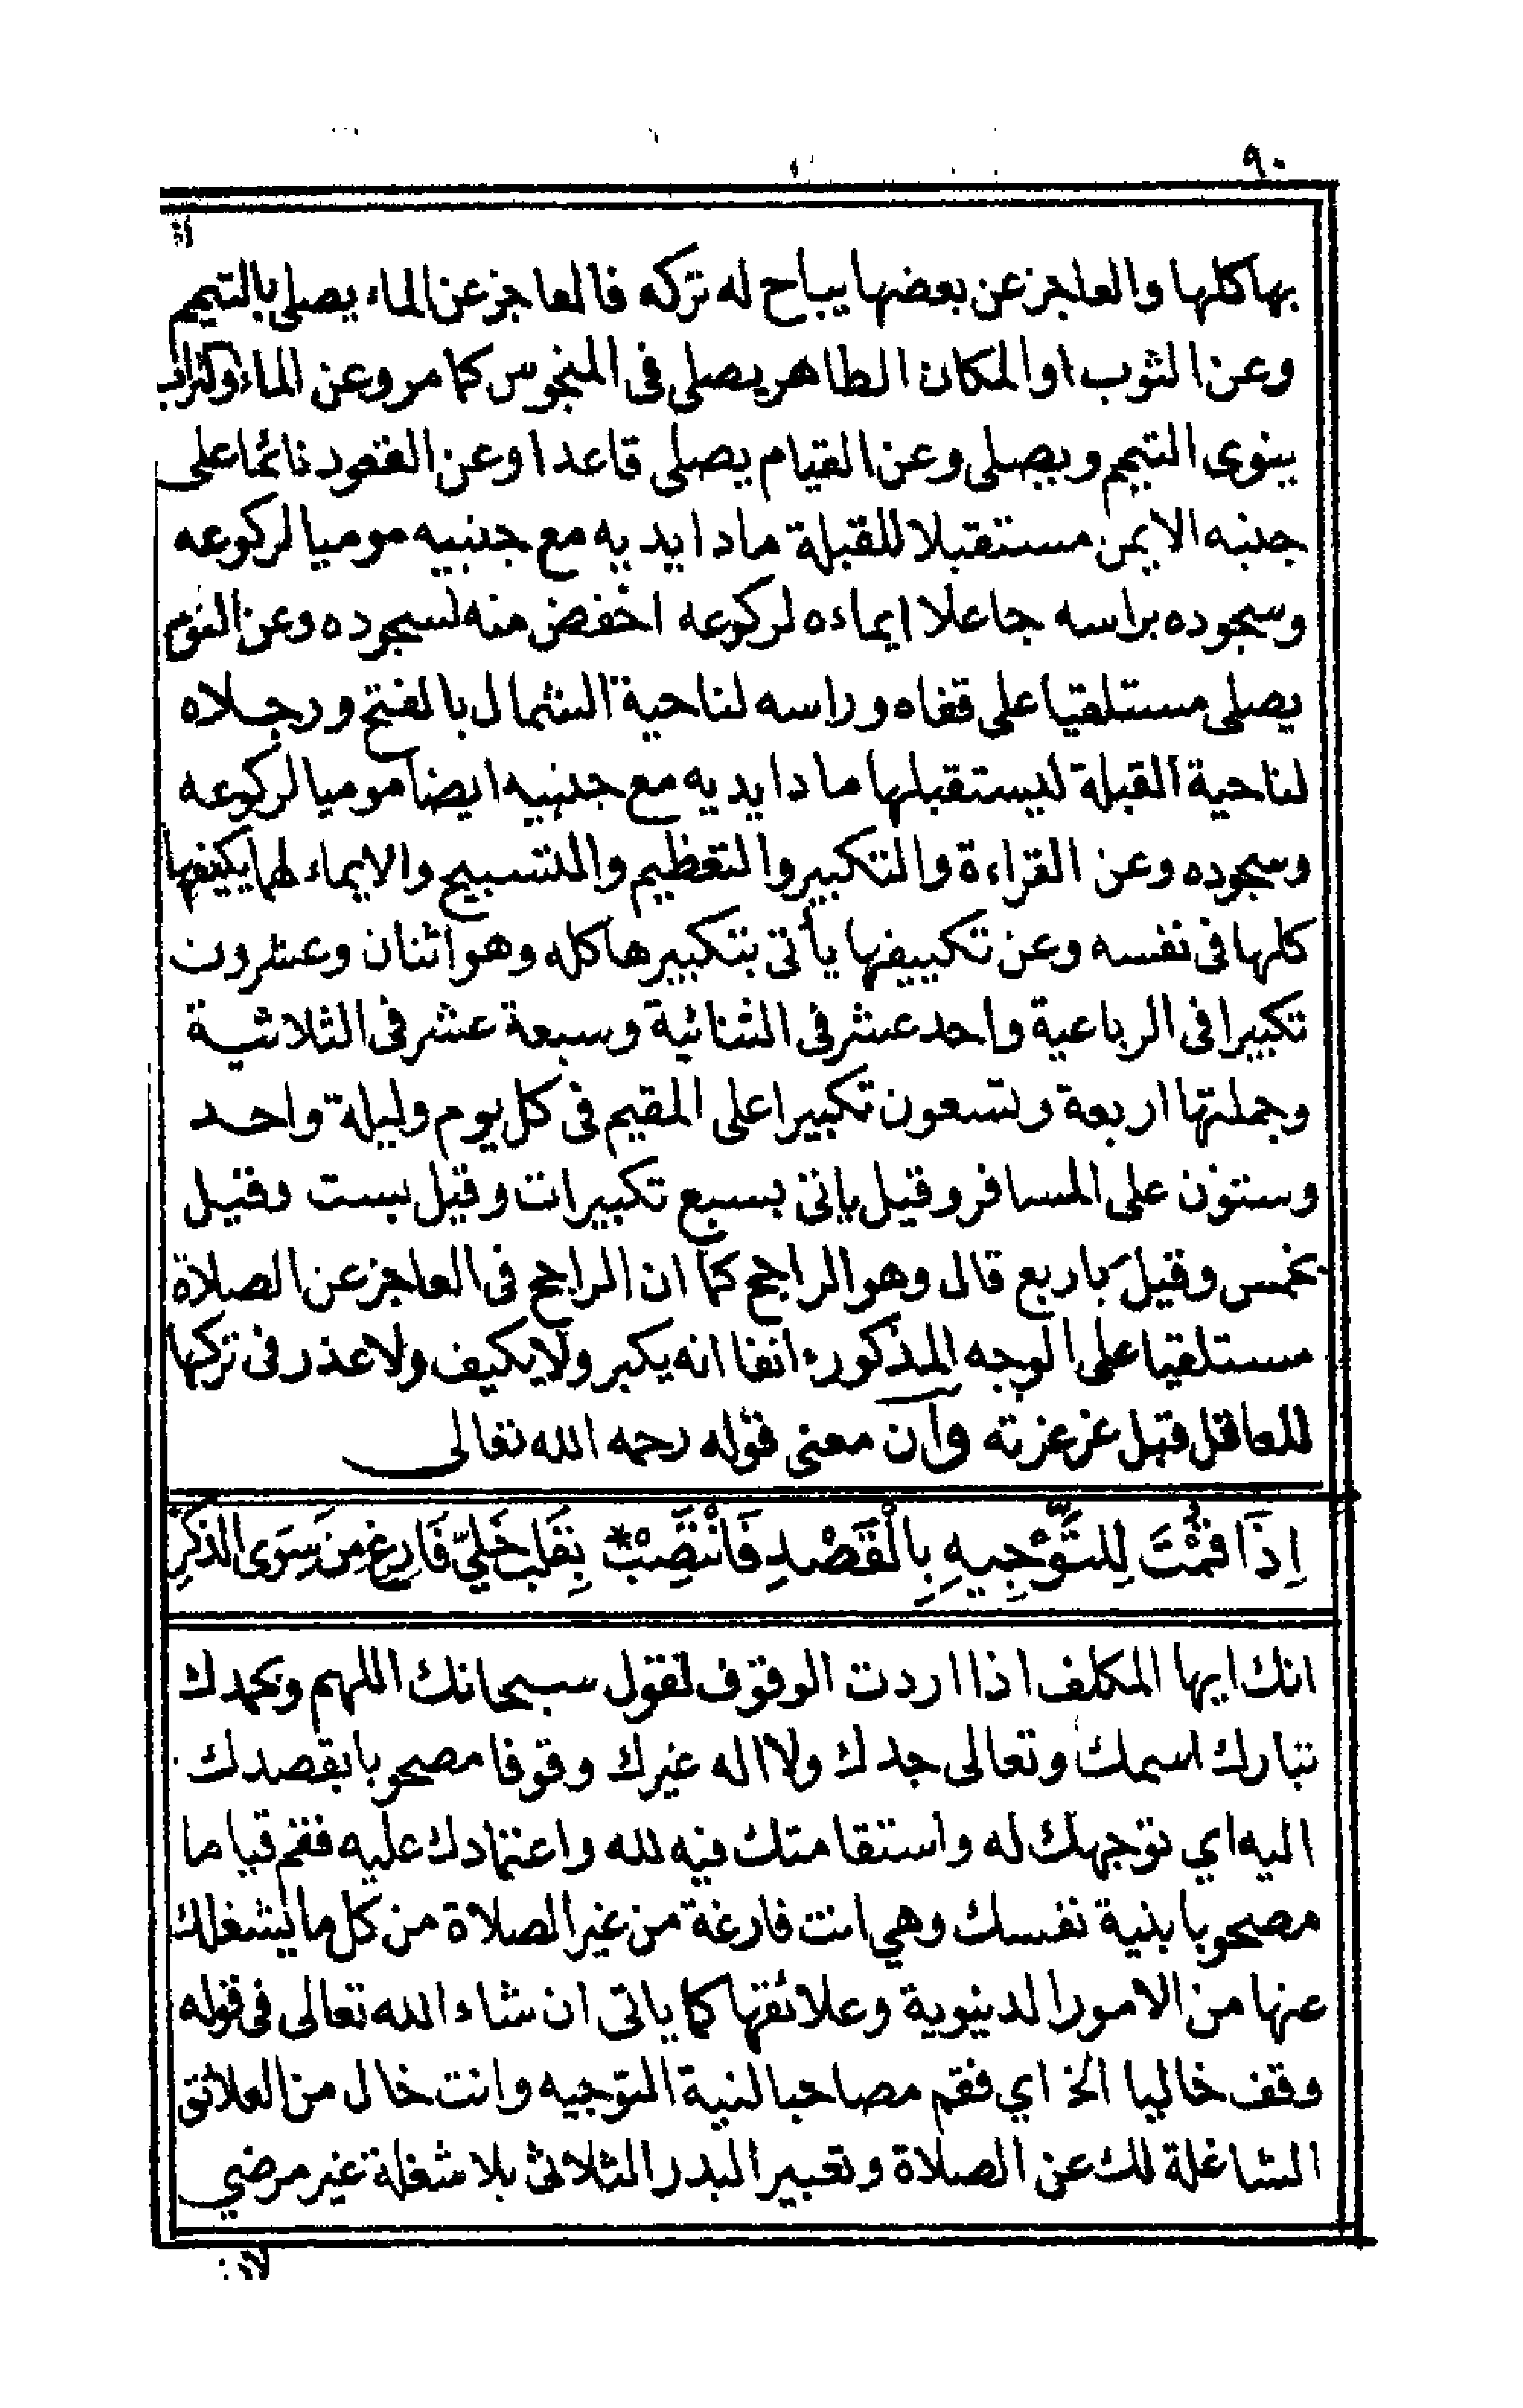 ٩٠
بها كلها والعاجز عن بعضها يباح له تركه فالعاجز عن الماء يصلي بالتيمم
وعن الثوب او المكان الطاهر يصلى فى المنجوس كما مر وعن الماء والتراب
ينوى التيمم ويصلى وعن القيام يصلى قاعدا وعن القعود نائما على
جنبه الايمن مستقبلا للقبلة مادا يديه مع جنبيه موميا لركوعه
وسجوده براسه جاعلا ايماءه لركوعه اخفض منه لسجوده وعن النوم
يصلى مستلقيا على قفاه وراسه لناحية الشمال بالفتح ورجلاه
لناحية القبلة ليستقبلها مادا يديه مع جنبيه ايضا موميا لركوعه
وسجوده وعن القراءة والتكبير والتعظيم والتسبيح والايماء لهما يكيفها
كلها فى نفسه وعن تكييفها يأتى بتكبيرها كله وهو اثنان وعشرون
تكبيرا فى الرباعية واحد عشر فى الثنائية وسبعة عشر فى الثلاثية
وجملتها اربعة وتسعون تكبيرا على المقيم فى كل يوم وليلة واحد
وستون على المسافر وقيل ياتى بسبع تكبيرات وقيل بست وقيل
بخمس وقيل باربع قال وهو الراجح كما ان الراجح فى العاجز عن الصلاة
مستلقيا على الوجه المذكور انفا انه يكبر ولا يكيف ولا عذر فى تركها
للعاقل قبل غرغرته وان معنى قوله رحمه الله تعالى
اِذَا قُمْتَ لِلتَّوْجِيهِ بِالْقَصْدِ فَانْتَصِبْ * بِقَلْبٍ خَلِيٍّ فَارِغٍ مِنْ سِوَى الذِّكْرِ
انك ايها المكلف اذا اردت الوقوف لتقول سبحانك اللهم وبحمدك
تبارك اسمك وتعالى جدك ولا اله غيرك وقوفا مصحوبا بقصدك
اليه اي توجهك له واستقامتك فيه لله واعتمادك عليه فقم قياما
مصحوبا بنية نفسك وهي انت فارغة من غير الصلاة من كل ما يشغلك
عنها من الامور الدينوية وعلائقها كما ياتى ان شاء الله تعالى فى قوله
وقف خاليا الخ اي فقم مصاحبا لنية التوجيه وانت خال من العلائق
الشاغلة لك عن الصلاة وتعبير البدر الثلاثى بلا شغلة غير مرضي